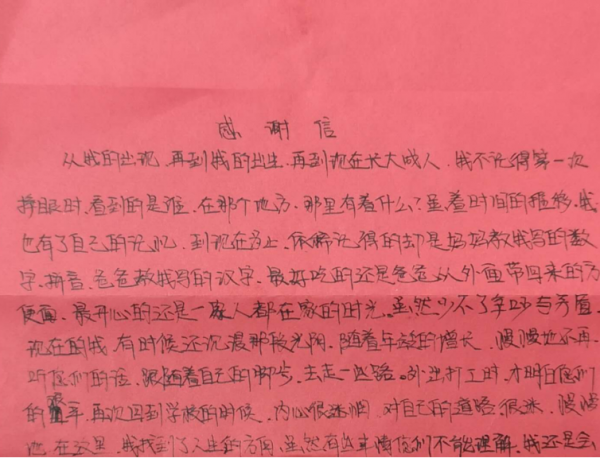 感谢信
从我的出现，再到我的出生，再到现在长大成人，我不记得第一次
睁眼时，看到的是谁，在那个地方，那里有着什么？虽着时间的推移，我
也有了自己的记忆，到现在为止，依稀记得的却是妈妈教我写的数
字、拼音、爸爸教我写的汉字，最好吃的还是爸爸从外面带回来的方
便面，最开心的还是一家人都在家的时光，虽然少不了争吵与矛盾，
现在的我，有时候还沉浸那段光阴，随着年龄的增长，慢慢地不再
听您们的话，跟随着自己的脚步，去走一些路。外出打工时，才明白您们
的 再次回到学校的时候，内心很迷惘，对自己的道路很迷，慢慢
地在这里，我找到了人生的方向，虽然有些事情您们不能理解，我还是会